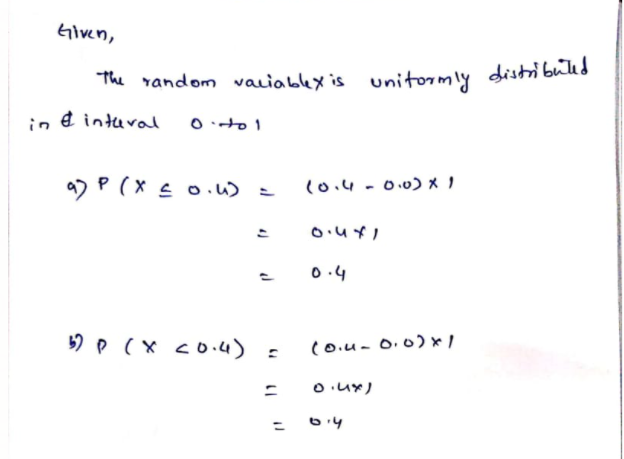 Given,
The random variable x is uniformly distributed
in interval 0 to 1
a) P (X ≤ 0.4) = (0.4 - 0.0) x 1
= 0.4 x 1
= 0.4
b) P (X < 0.4) = (0.4 - 0.0) x 1
= 0.4x1
= 0.4